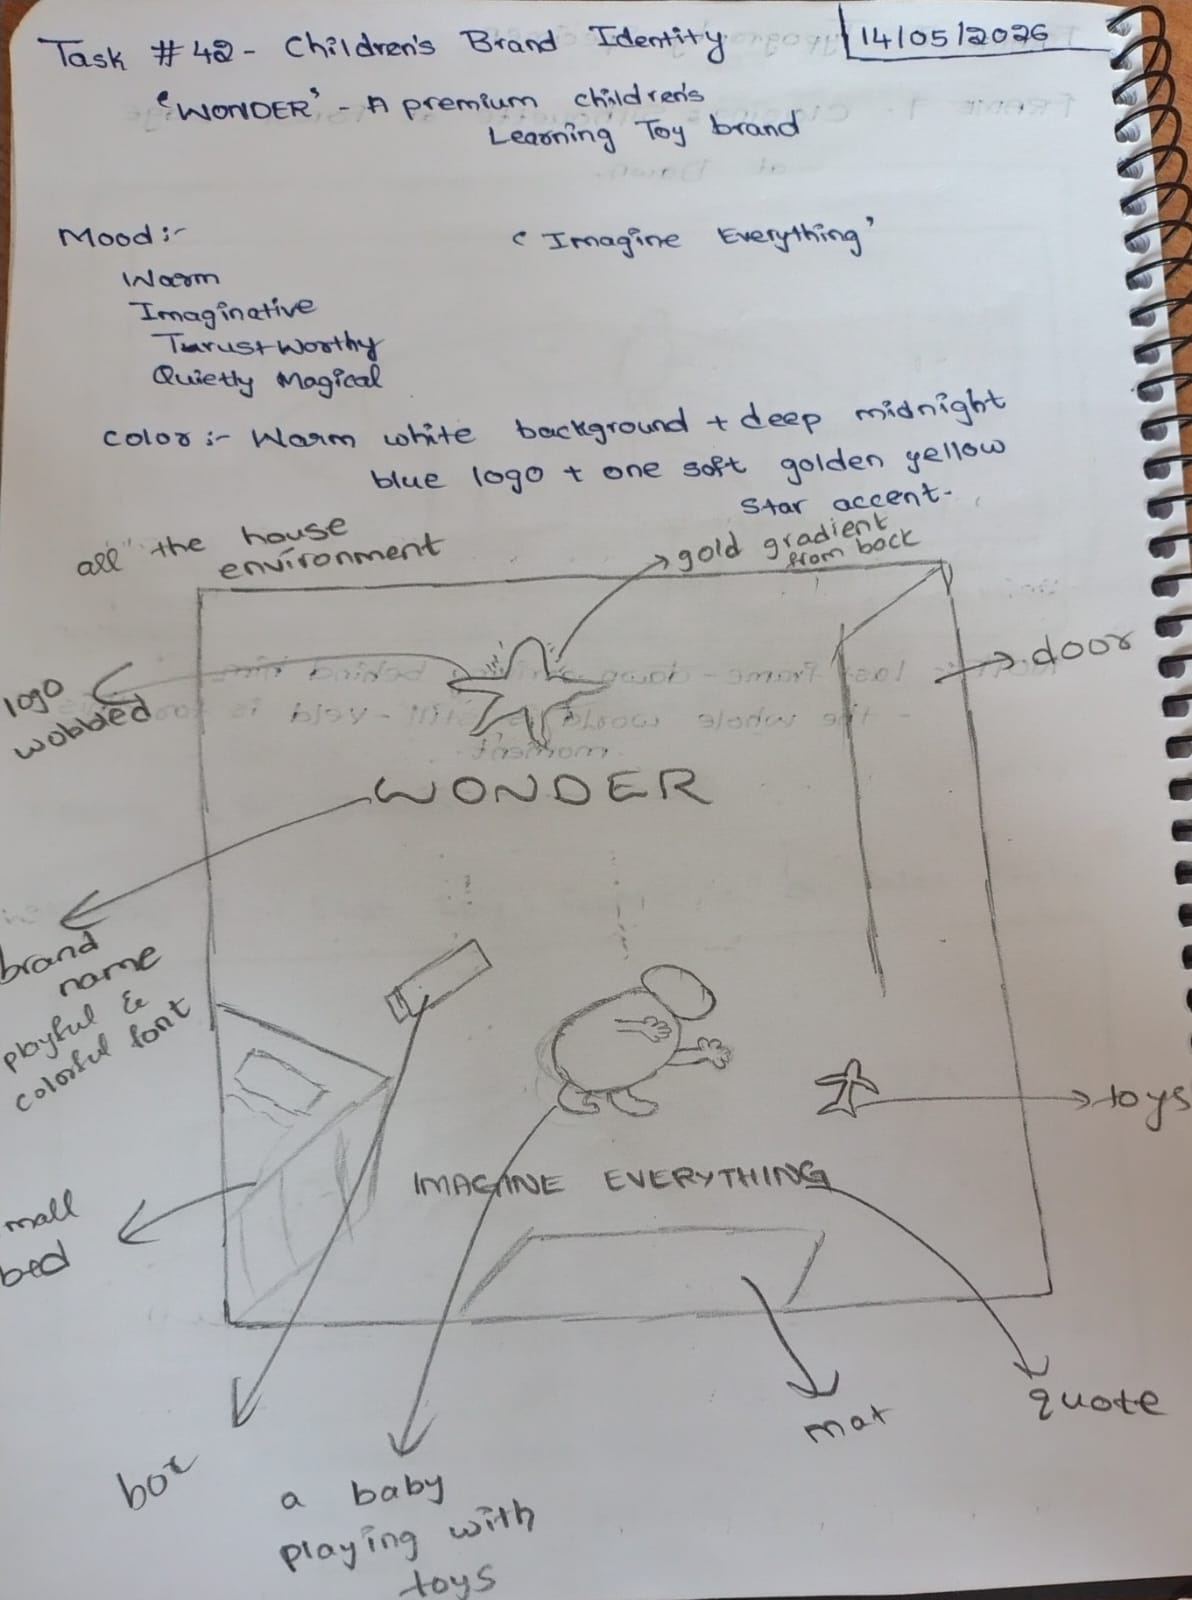 Task #42 - Children's Brand Identity
14/05/2026
'WONDER' - A premium children's
Learning Toy brand
Mood :-
'Imagine Everything'
Warm
Imaginative
Trustworthy
Quietly Magical
color :- Warm white background + deep midnight
blue logo + one soft golden yellow
star accent.
all the house
environment
gold gradient
from back
door
logo
wobbed
WONDER
brand
name
playful &
colorful font
toys
IMAGINE EVERYTHING
mall
bed
mat
quote
box
a baby
playing with
toys